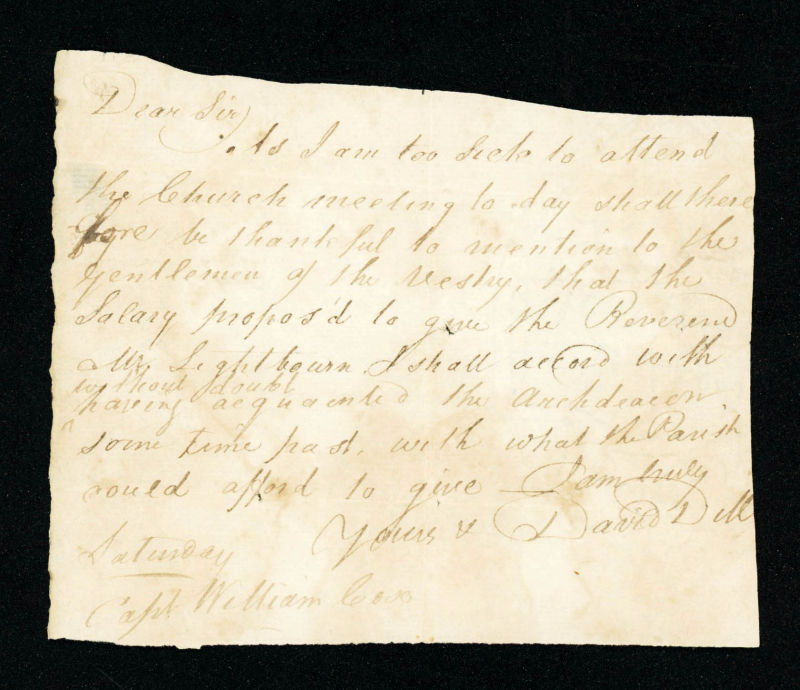 Dear Sir,
As I am too Sick to attend
the Church meeting to day shall there
fore be thankful to mention to the
Gentlemen of the Vestry, that the
Salary propos'd to give the Reverend
Mr Lightbourn I shall accord with
without doubt
having acquainted the Archdeacon
some time past, with what the Parish
would afford to give I am truly
Yours &c David Dill
Saturday
Capt William Cox